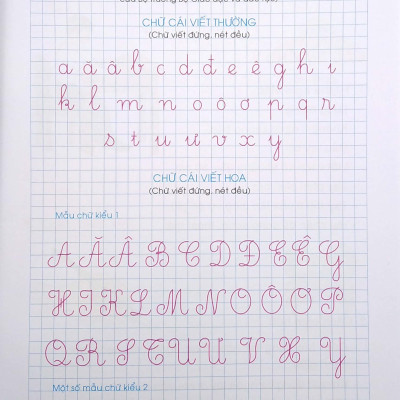 CHỮ CÁI VIẾT THƯỜNG
(Chữ viết đứng, nét đều)
a ă â b c d đ e ê g h i
k l m n o ô ơ p q r
s t u ư v x y
CHỮ CÁI VIẾT HOA
(Chữ viết đứng, nét đều)
Mẫu chữ kiểu 1
A Ă Â B C D Đ E Ê G
H I K L M N O Ô Ơ P
Q R S T U Ư V X Y
Một số mẫu chữ kiểu 2